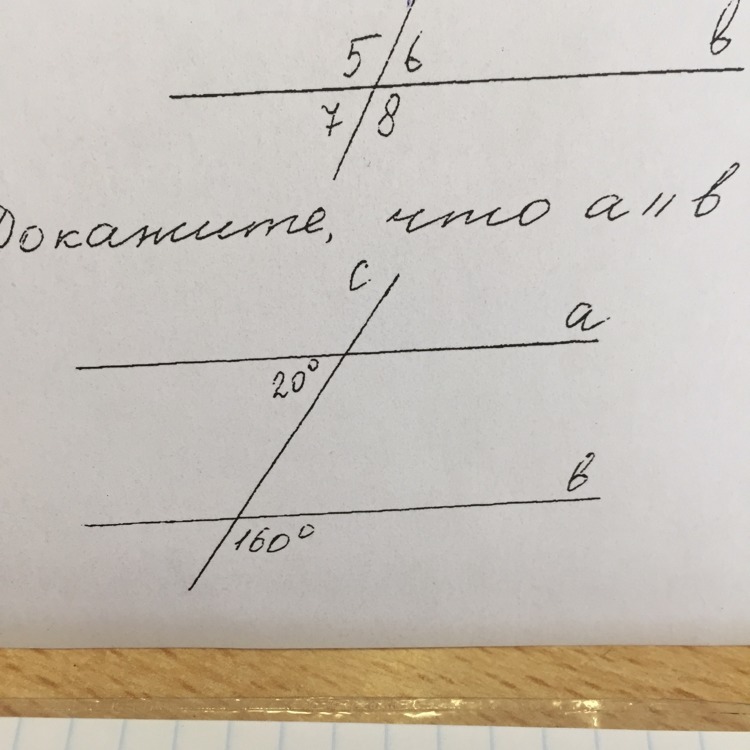 5 6 в
7 8
Докажите, что a || в
c
a
20°
в
160°